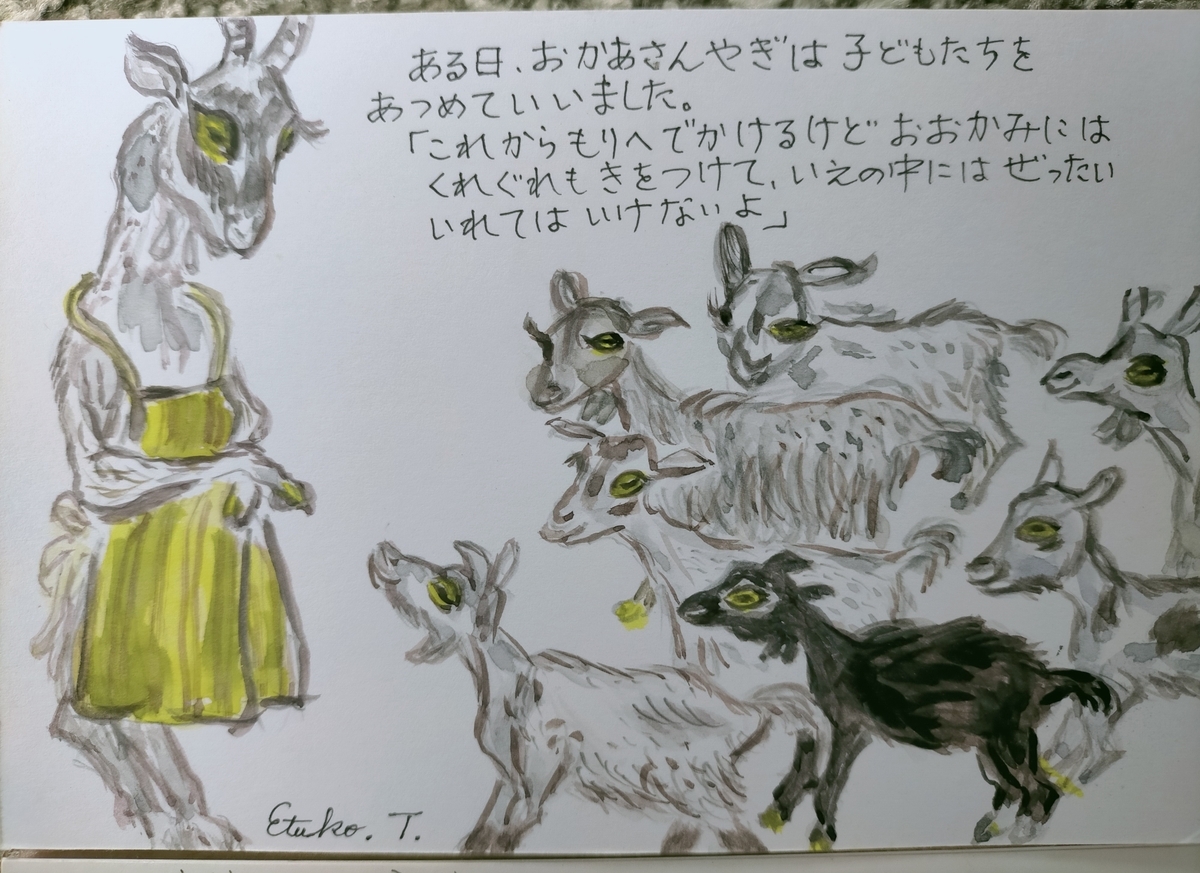 ある日、おかあさんやぎは 子どもたちを
あつめていいました。
「これからもりへでかけるけど おおかみには
くれぐれも きをつけて、いえの中には ぜったい
いれては いけないよ」
Etuko. T.